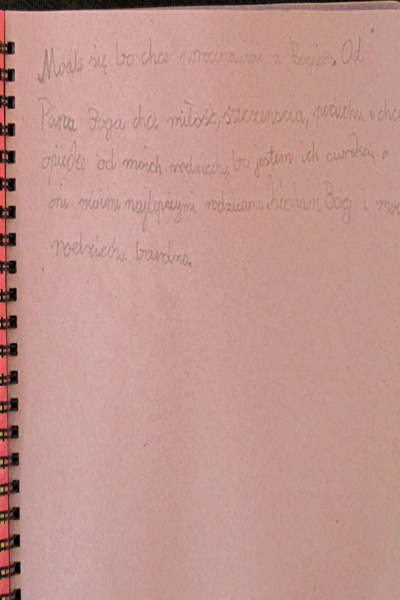 Modle się bo chce porozmawiac z Bogiem. Od
Pana Boga chce miłość, szczenscia, i chce
opieke od moich rodziców, bo jestem ich curską a
oni moimi najlepszymi rodzicami. Kocham Bog i mo
rodziców bardzo.